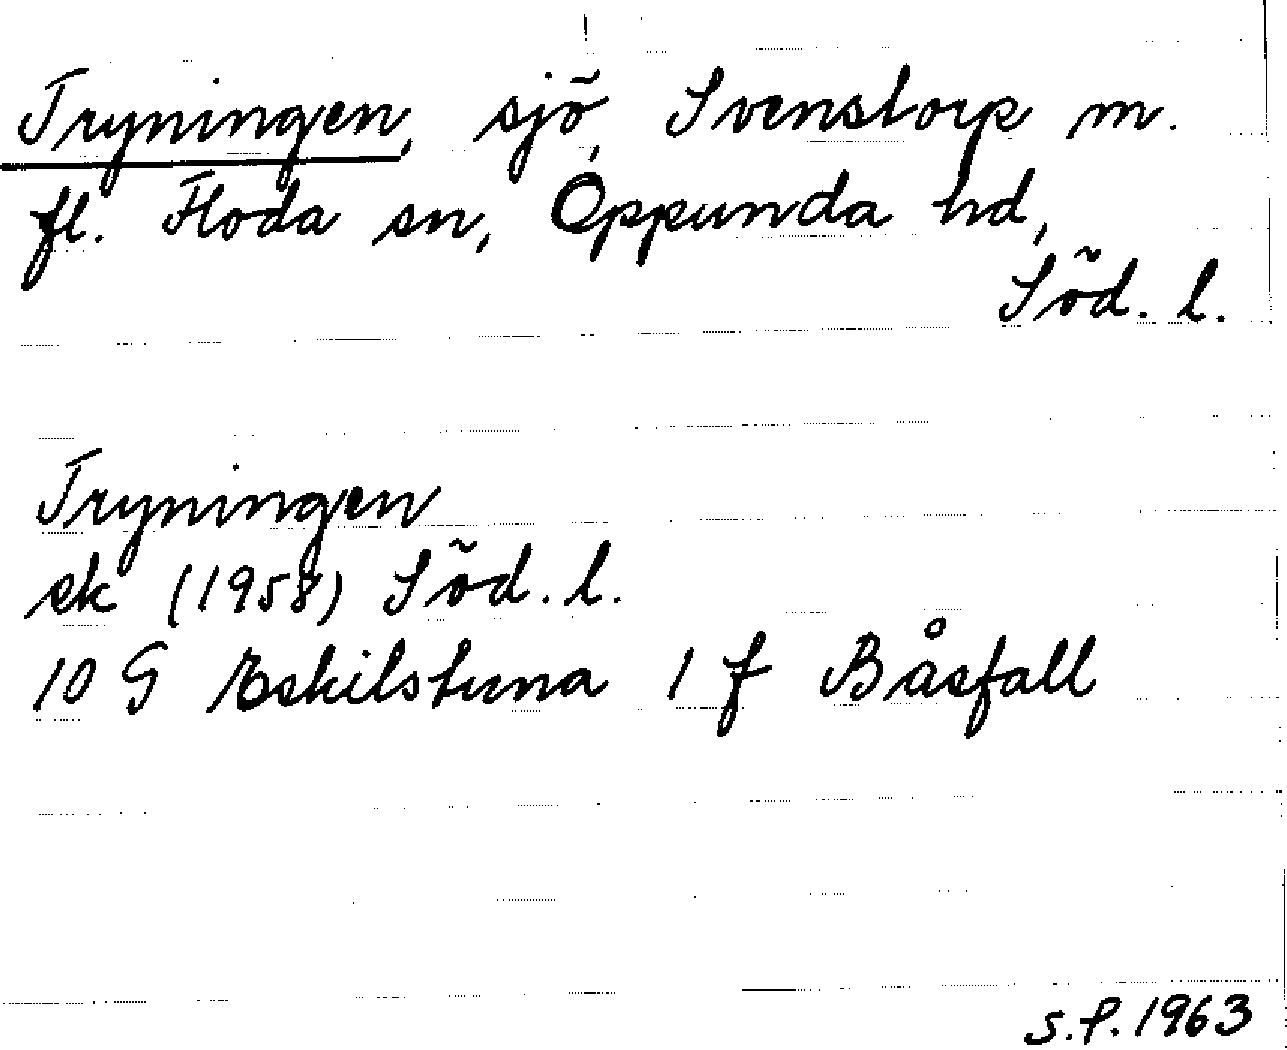 Tryningen, sjö, Svenstorp m.
fl. Floda sn, Oppunda hd,
Söd. l.
Tryningen
ek (1958) Söd. l.
10 G Eskilstuna 1 f Båsfall
S.P. 1963